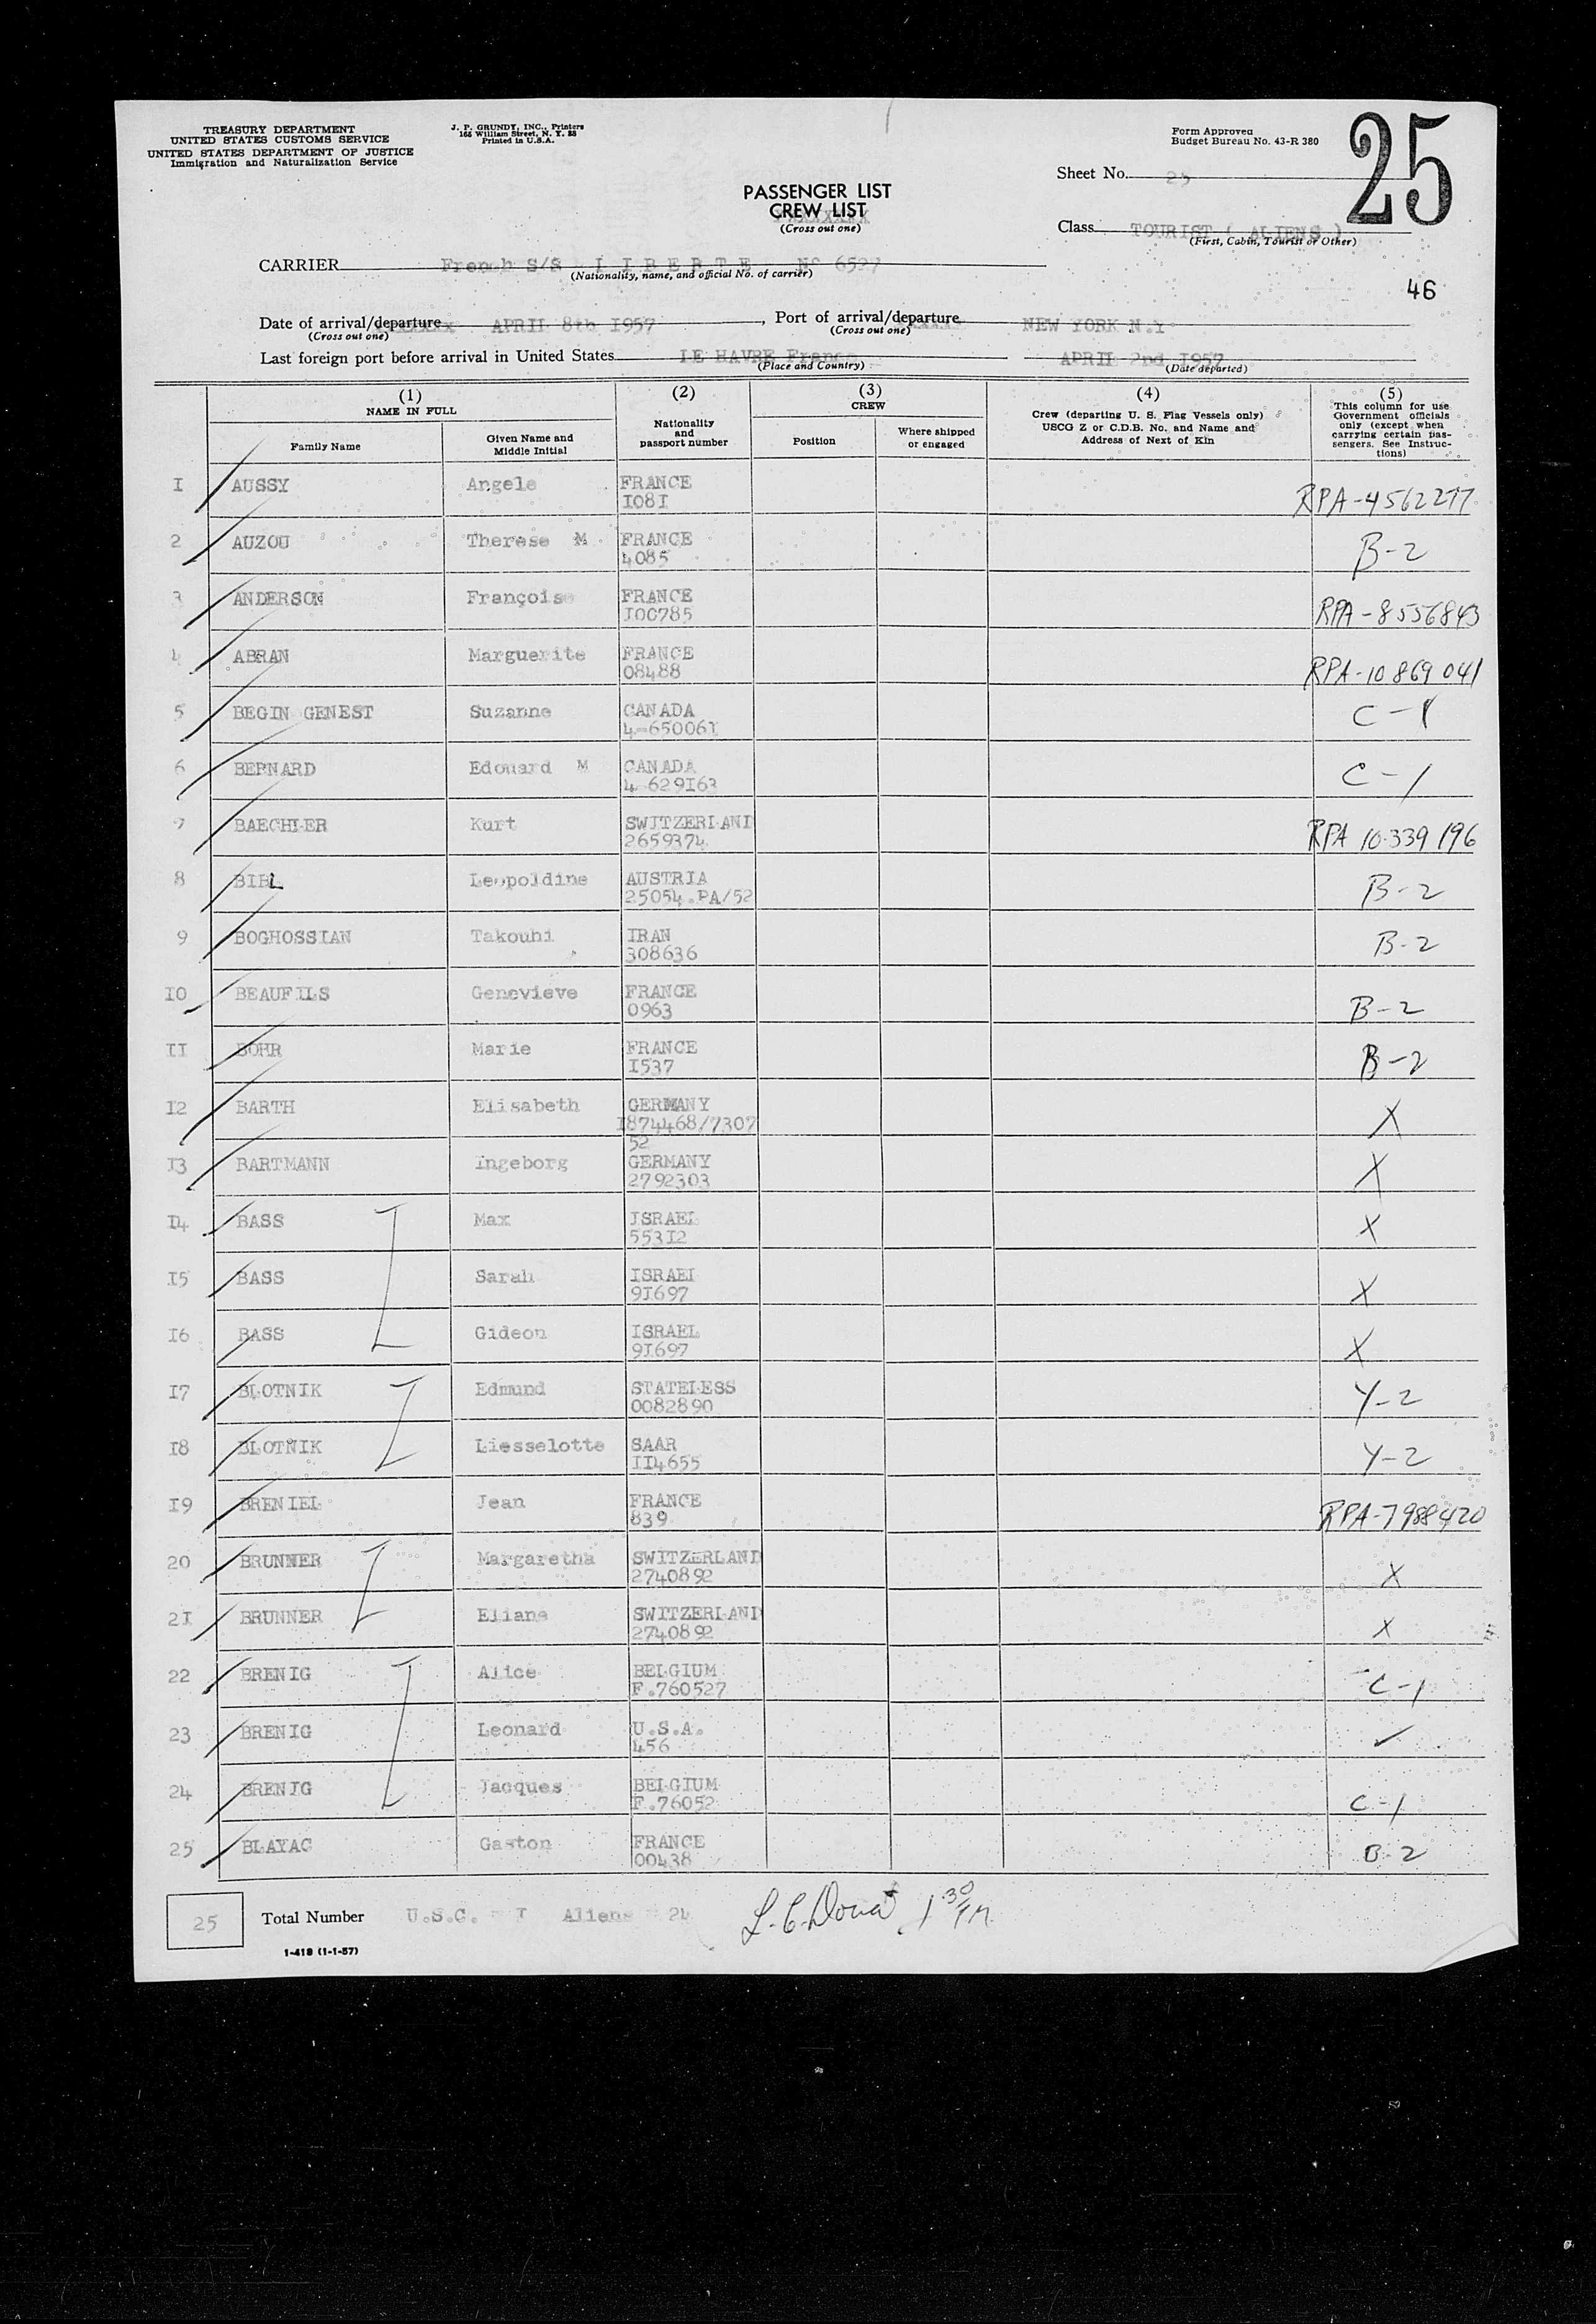 TREASURY DEPARTMENT
UNITED STATES CUSTOMS SERVICE
UNITED STATES DEPARTMENT OF JUSTICE
Immigration and Naturalization Service
J. P. GRUNDY, INC., Printers
165 William Street, N. Y. 38
Printed in U.S.A.
Form Approved
Budget Bureau No. 43-R 380
25
Sheet No. 25
PASSENGER LIST
CREW LIST
(Cross out one)
Class TOURIST ( ALIENS )
(First, Cabin, Tourist or Other)
CARRIER French S/S L I B E R T E N° 6527
(Nationality, name, and official No. of carrier)
46
Date of arrival/departure APRIL 8th I957, Port of arrival/departure NEW YORK N.Y
(Cross out one) (Cross out one)
Last foreign port before arrival in United States LE HAVRE France APRIL 2nd I957
(Place and Country) (Date departed)
(1) (2) (3) (4) (5)
NAME IN FULL
Family Name
Given Name and Middle Initial
Nationality and passport number
CREW
Position
Where shipped or engaged
Crew (departing U. S. Flag Vessels only)
USCG Z or C.D.B. No. and Name and
Address of Next of Kin
This column for use
Government officials
only (except when
carrying certain pas-
sengers. See Instruc-
tions)
I AUSSY Angele FRANCE I08I RPA-4562277
2 AUZOU Therese M FRANCE 4085 B-2
3 ANDERSON Françoise FRANCE I00785 RPA-8556843
4 ABRAN Marguerite FRANCE 08488 RPA-10 869 041
5 BEGIN GENEST Suzanne CANADA 4-65006I C-1
6 BERNARD Edouard M CANADA 4-629I63 C-1
7 BAECHLER Kurt SWITZERLAND 2659374 RPA 10.339 196
8 BIBL Leopoldine AUSTRIA 25054.PA/52 B-2
9 BOGHOSSIAN Takouhi IRAN 308636 B-2
I0 BEAUFILS Genevieve FRANCE 0963 B-2
II BOHR Marie FRANCE I537 B-2
I2 BARTH Elisabeth GERMANY I874468/7307 52 X
I3 BARTMANN Ingeborg GERMANY 2792303 X
I4 BASS Max ISRAEL 553I2 X
I5 BASS Sarah ISRAEL 9I697 X
I6 BASS Gideon ISRAEL 9I697 X
I7 BLOTNIK Edmund STATELESS 0082890 Y-2
I8 BLOTNIK Liesselotte SAAR II4655 Y-2
I9 BRENIEL Jean FRANCE 839 RPA-7988420
20 BRUNNER Margaretha SWITZERLAND 2740892 X
2I BRUNNER Eliane SWITZERLAND 2740892 X
22 BRENIG Alice BELGIUM F.760527 C-1
23 BRENIG Leonard U.S.A. 456 ✓
24 BRENIG Jacques BELGIUM F.76052 C-1
25 BLAYAC Gaston FRANCE 00438 B-2
25 Total Number U.S.C. = I Aliens = 24 1 30 P.M.
1-418 (1-1-57)